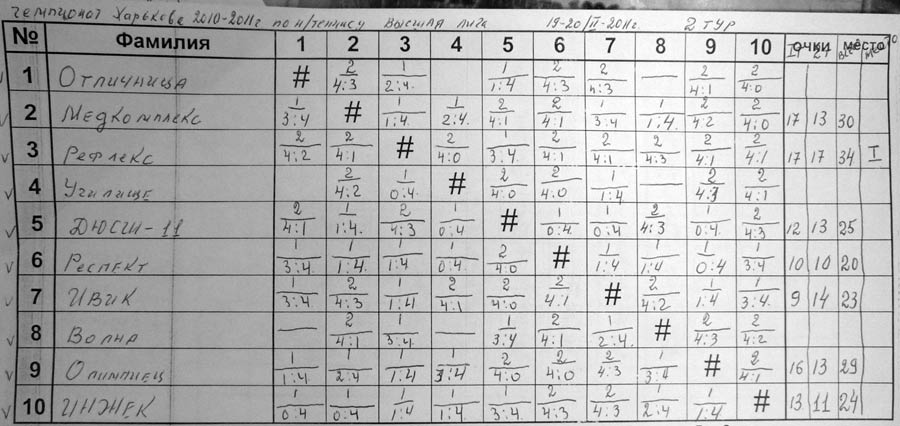 Чемпионат Харькова 2010-2011г по н/теннису Высшая лига 19-20/II-2011г. 2 тур
№ Фамилия 1 2 3 4 5 6 7 8 9 10 очки место
1 Отличница # 2/4:3 1/2:4 1/1:4 2/4:3 2/4:3 — 2/4:1 2/4:0
2 Медкомплекс 1/3:4 # 1/1:4 1/2:4 2/4:1 2/4:1 1/3:4 1/1:4 2/4:2 2/4:0 17 13 30
3 Рефлекс 2/4:2 2/4:1 # 2/4:0 1/3:4 2/4:1 2/4:1 2/4:3 2/4:1 2/4:1 17 17 34 I
4 Училище 2/4:2 1/0:4 # 2/4:0 2/4:0 1/1:4 — 2/4:3 2/4:1
5 ДЮСШ-11 2/4:1 1/1:4 2/4:3 1/0:4 # 1/0:4 1/0:4 2/4:3 1/0:4 2/4:3 12 13 25
6 Респект 1/3:4 1/1:4 1/1:4 1/0:4 2/4:0 # 1/1:4 1/1:4 1/0:4 1/3:4 10 10 20
7 ИВИК 1/3:4 2/4:3 1/1:4 2/4:1 2/4:0 2/4:1 # 2/4:2 1/1:4 1/3:4 9 14 23
8 Волна — 2/4:1 1/3:4 — 1/3:4 2/4:1 1/2:4 # 2/4:3 2/4:2
9 Олимпиец 1/1:4 1/2:4 1/1:4 1/3:4 2/4:0 2/4:0 2/4:3 1/3:4 # 2/4:1 16 13 29
10 ИНЖЕК 1/0:4 1/0:4 1/1:4 1/1:4 1/3:4 2/4:3 2/4:3 1/2:4 1/1:4 # 13 11 24